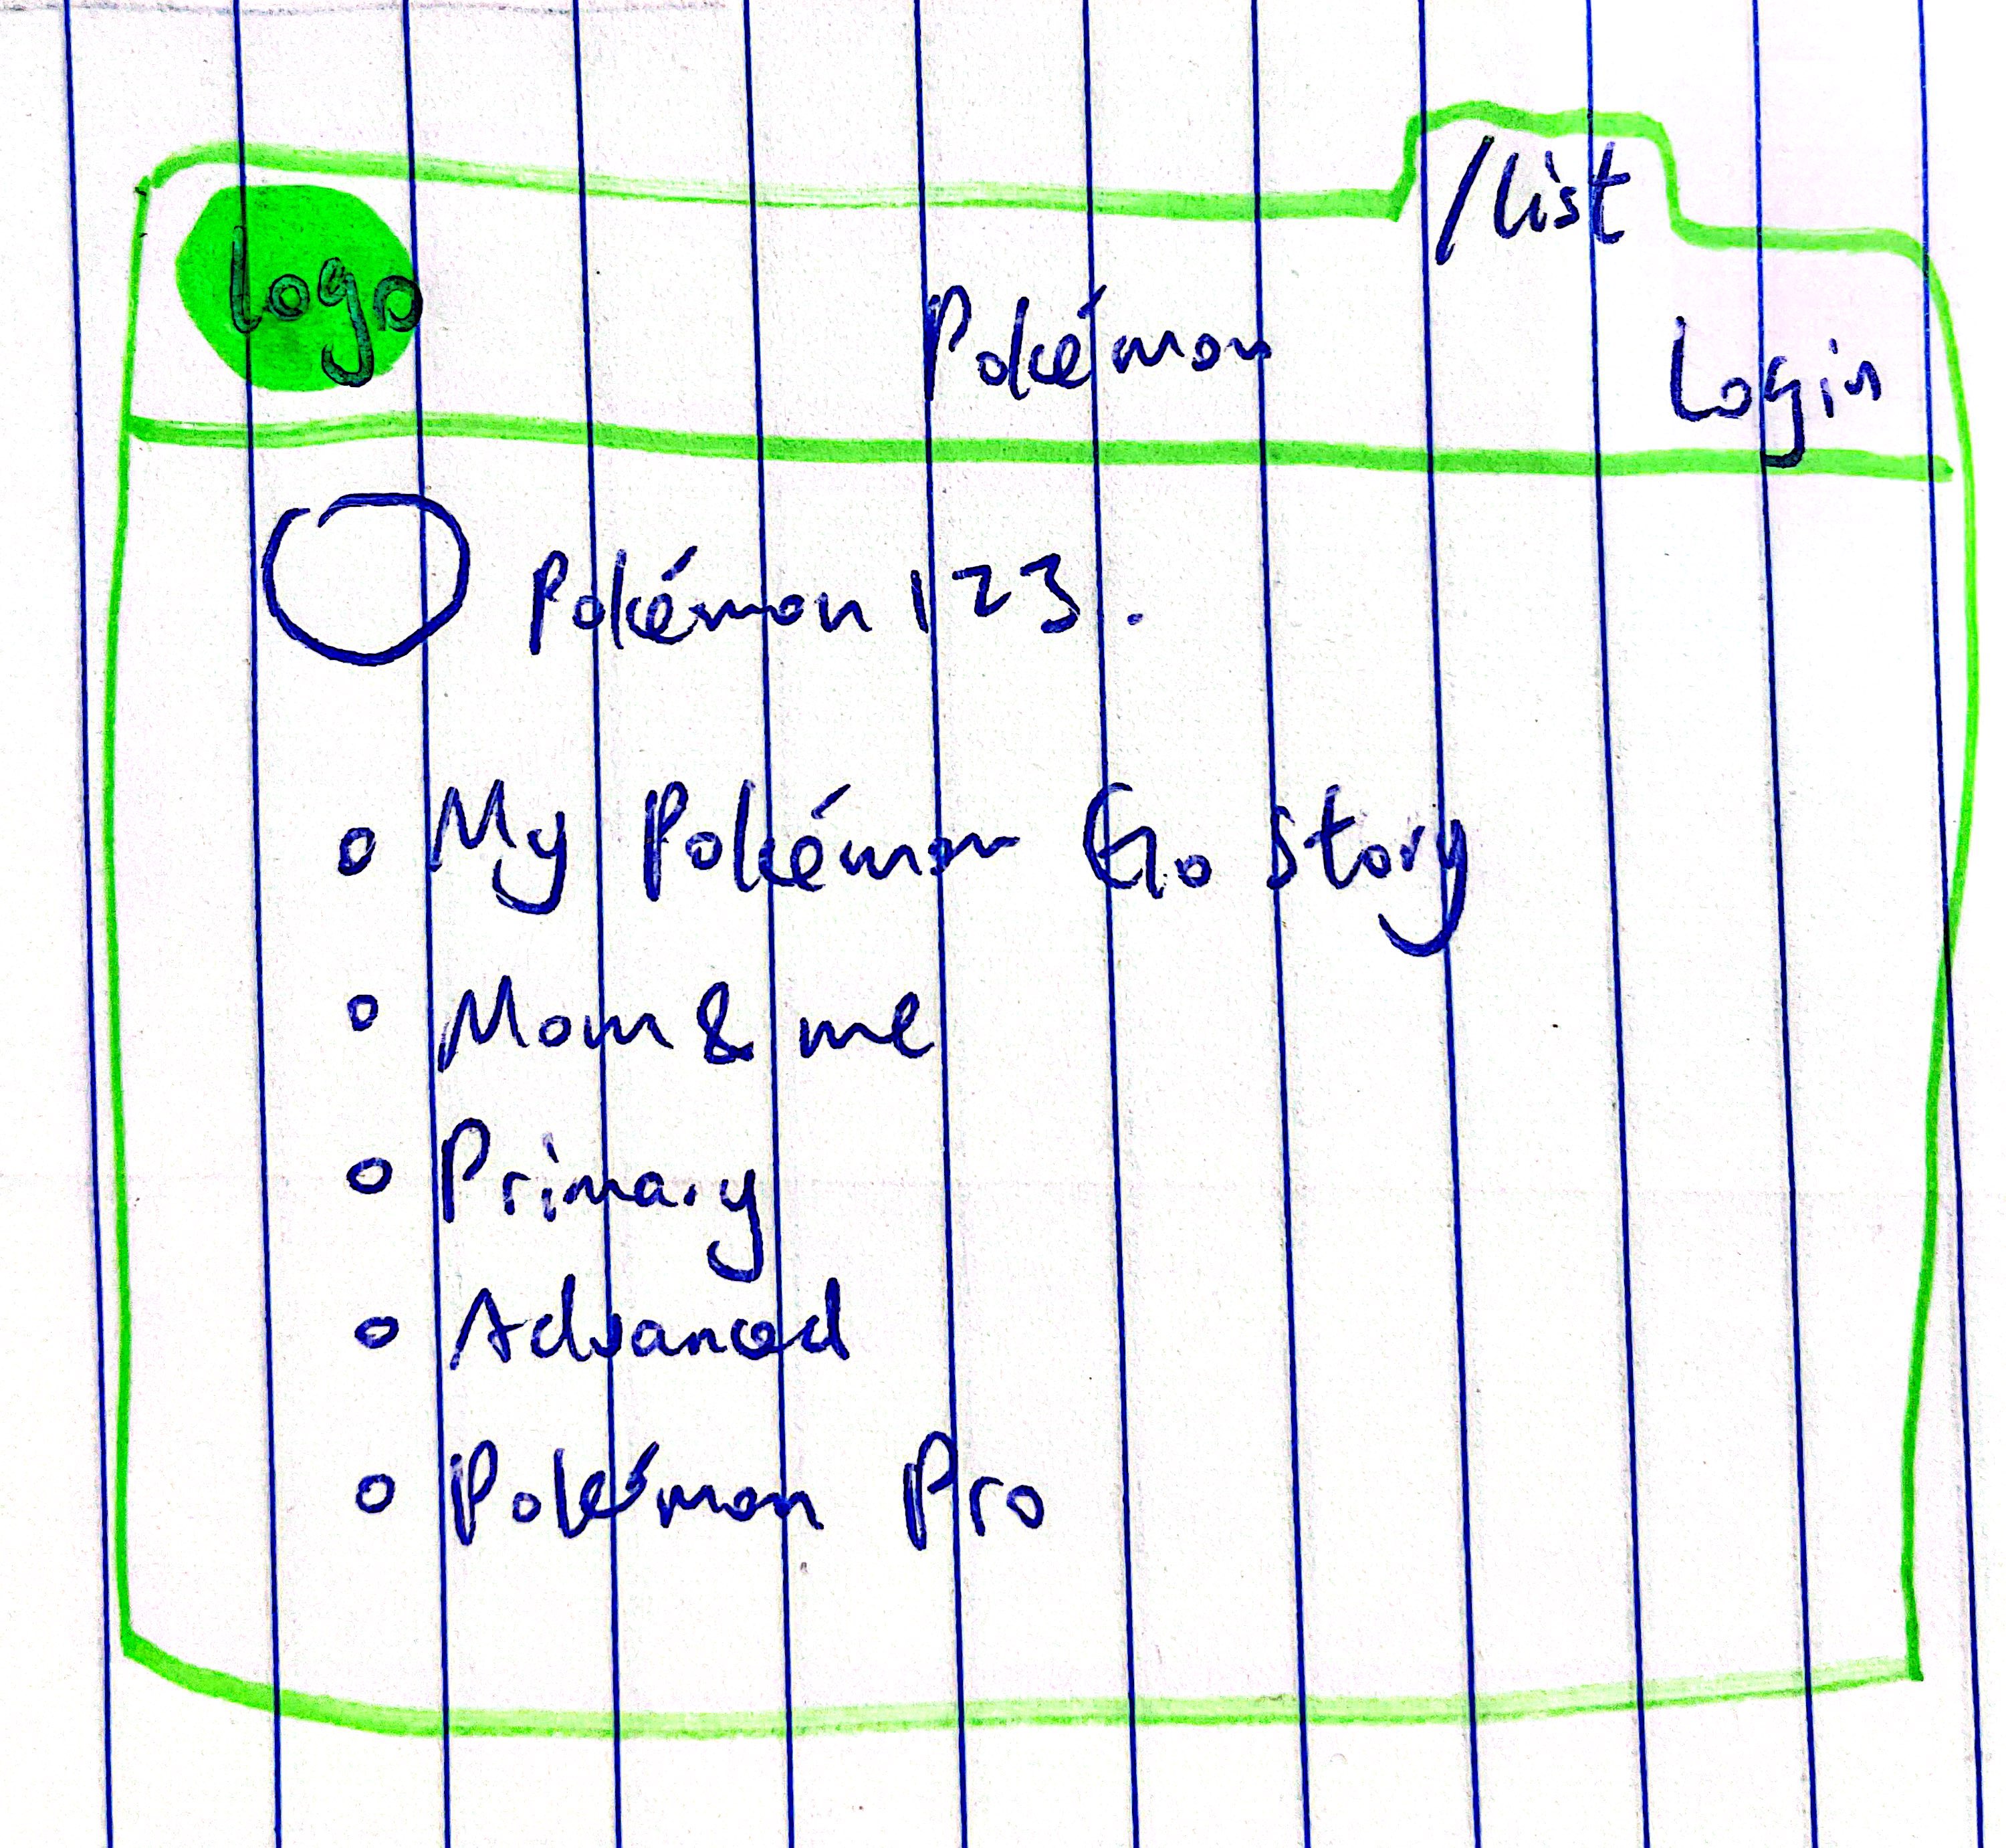 /list
logo
Pokémon
Login
Pokémon 123.
My Pokémon Go Story
Mom & me
Primary
Advanced
Pokémon Pro